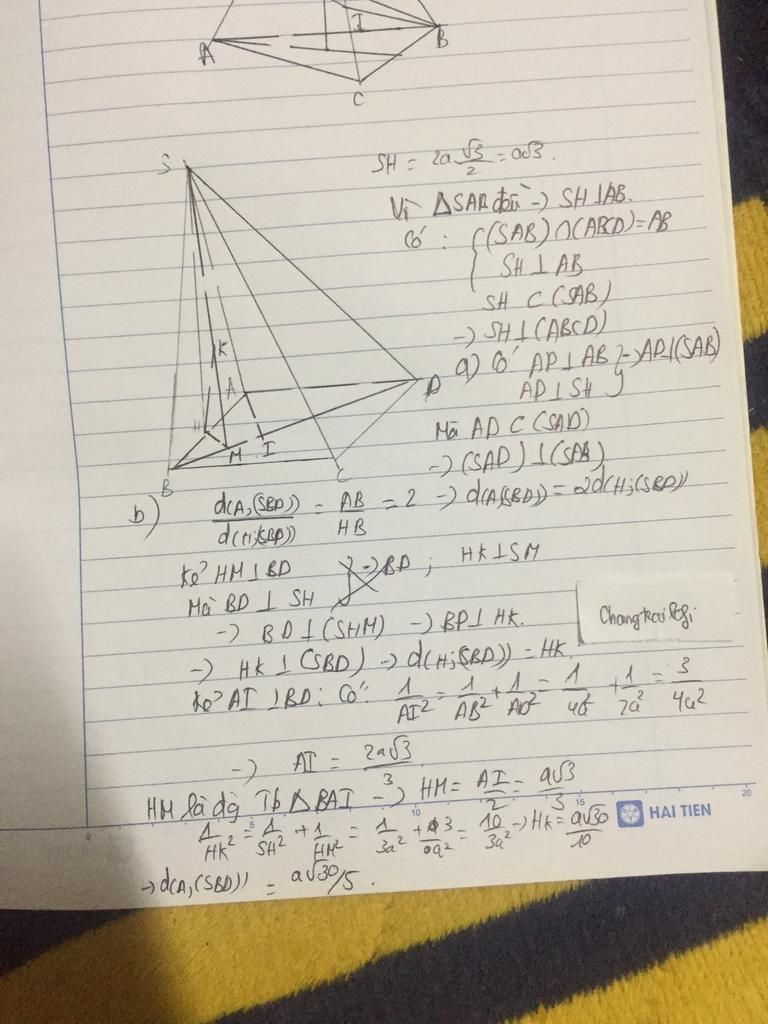 A
I
B
C
S
K
A
D
H
M
I
B
C
SH = 2a √3/2 = a√3.
Vì ΔSAB đều -> SH ⊥ AB.
Có : { (SAB) ∩ (ABCD) = AB
SH ⊥ AB
SH ⊂ (SAB)
-> SH ⊥ (ABCD)
a) Có AD ⊥ AB } -> AD ⊥ (SAB)
AD ⊥ SH
Mà AD ⊂ (SAD)
-> (SAD) ⊥ (SAB)
b) d(A,(SBD))/d(H;(SBD)) = AB/HB = 2 -> d(A(SBD)) = 2d(H;(SBD))
Kẻ HM ⊥ BD ; HK ⊥ SM
Mà BD ⊥ SH
-> BD ⊥ (SHM) -> BD ⊥ HK.
-> HK ⊥ (SBD) -> d(H;(SBD)) = HK.
Kẻ AI ⊥ BD: Có: 1/AI² = 1/AB² + 1/AD² = 1/4a² + 1/2a² = 3/4a²
-> AI = 2a√3/3
HM là đg Tb Δ BAI -> HM = AI/2 = a√3/3
1/HK² = 1/SH² + 1/HM² = 1/3a² + 3/a² = 10/3a² -> HK = a√30/10
-> d(A,(SBD)) = a√30/5.
HAI TIEN
0 5 10 15 20